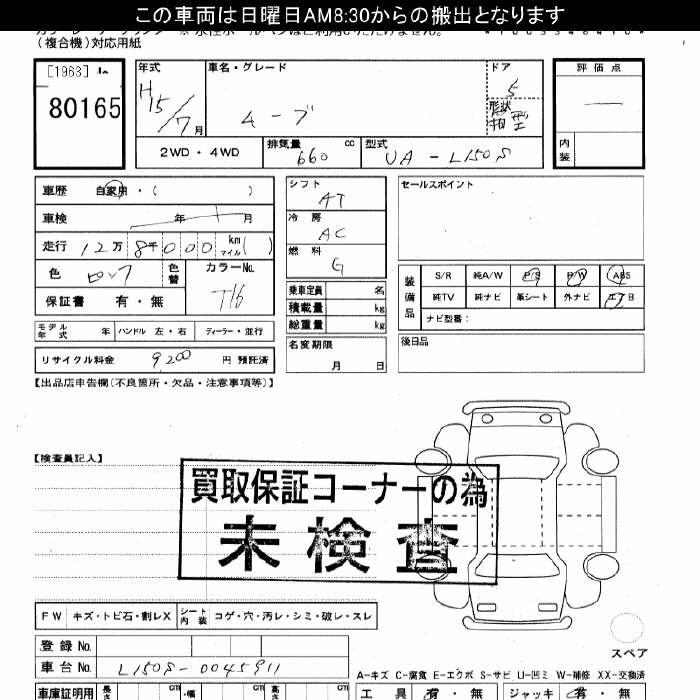 この車両は日曜日AM8:30からの搬出となります
(複合機)対応用紙
[1963]
80165
年式
H15/7月
車名・グレード
ムーブ
ドア
5
形状
箱型
評価点
内装
2WD・4WD
排気量 660 cc
型式 UA-L150S
車歴 自家用・( )
車検 年 月
走行 12万8千000 km マイル( )
色 ピンク 色替
カラーNo. T16
保証書 有・無
シフト
AT
冷房
AC
燃料
G
乗車定員 名
積載量 kg
総重量 kg
名変期限
月 日
セールスポイント
装備品
S/R 純A/W P/S P/W ABS
純TV 純ナビ 革シート 外ナビ エアB
ナビ型番:
後日品
モデル年式 年 ハンドル 左・右 ディーラー・並行
リサイクル料金 9200 円 預託済
【出品店申告欄(不良箇所・欠品・注意事項等)】
【検査員記入】
買取保証コーナーの為
未検査
FW キズ・トビ石・割レX シート内装 コゲ・穴・汚レ・シミ・破レ・スレ
スペア
登録No.
車台No. L150S-0045911
A-キズ C-腐食 E-エクボ S-サビ U-凹ミ W-補修 XX-交換済
車庫証明用 長さ cm ・幅 cm 高さ cm
工具 有・無 ジャッキ 有・無